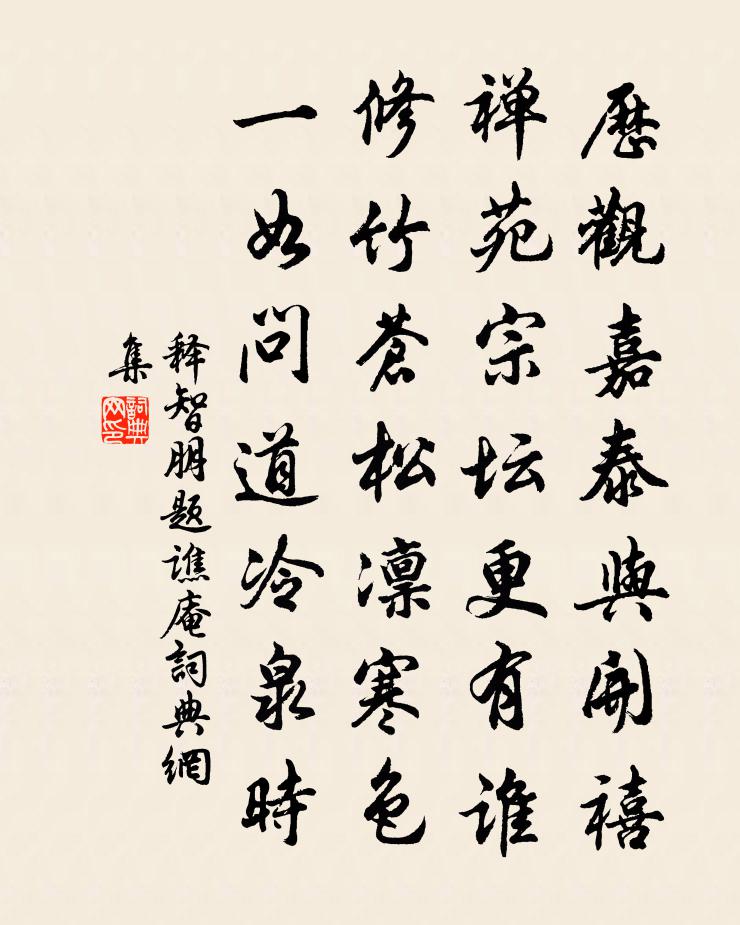 歷觀嘉泰與開禧
禅苑宗坛更有谁
修竹蒼松凛寒色
一如問道冷泉時
释智朋题譙庵詞典網
集
詞典
网印